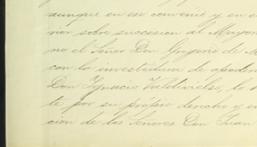 aunque en su convenio y en e
nios sobre succesion al Mayora
no el Señor Don Gregorio de M
con la investidura de apodera
Don Ignacio Valdivielso, lo h
le por su propio derecho y en
cion de los Señores Don Juan